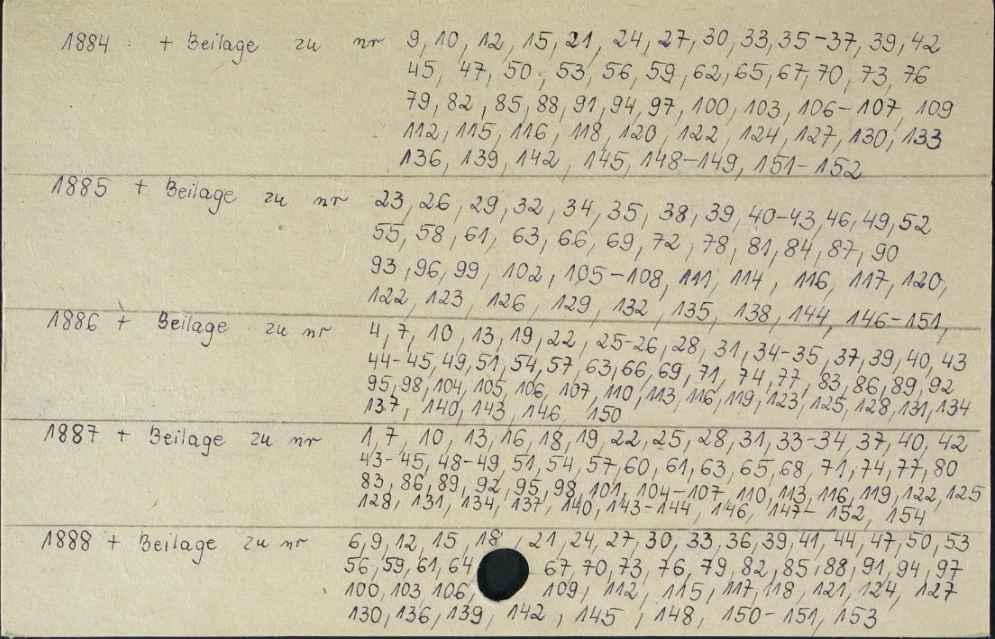 1884 : + Beilage zu nr 9, 10, 12, 15, 21, 24, 27, 30, 33, 35-37, 39, 42
45, 47, 50, 53, 56, 59, 62, 65, 67, 70, 73, 76
79, 82, 85, 88, 91, 94, 97, 100, 103, 106-107, 109
112, 115, 116, 118, 120, 122, 124, 127, 130, 133
136, 139, 142, 145, 148-149, 151-152
1885 + Beilage zu nr 23, 26, 29, 32, 34, 35, 38, 39, 40-43, 46, 49, 52
55, 58, 61, 63, 66, 69, 72, 78, 81, 84, 87, 90
93, 96, 99, 102, 105-108, 111, 114, 116, 117, 120,
122, 123, 126, 129, 132, 135, 138, 144, 146-151,
1886 + Beilage zu nr 4, 7, 10, 13, 19, 22, 25-26, 28, 31, 34-35, 37, 39, 40, 43
44-45, 49, 51, 54, 57, 63, 66, 69, 71, 74, 77, 83, 86, 89, 92
95, 98, 104, 105, 106, 107, 110, 113, 116, 119, 123, 125, 128, 131, 134
137, 140, 143, 146 150
1887 + Beilage zu nr 1, 7, 10, 13, 16, 18, 19, 22, 25, 28, 31, 33-34, 37, 40, 42
43-45, 48-49, 51, 54, 57, 60, 61, 63, 65, 68, 71, 74, 77, 80
83, 86, 89, 92, 95, 98, 101, 104-107, 110, 113, 116, 119, 122, 125
128, 131, 134, 137, 140, 143-144, 146, 147-152, 154
1888 + Beilage zu nr 6, 9, 12, 15, 18, 21, 24, 27, 30, 33, 36, 39, 41, 44, 47, 50, 53
56, 59, 61, 64 67, 70, 73, 76, 79, 82, 85, 88, 91, 94, 97
100, 103, 106, 109, 112, 115, 117, 118, 121, 124, 127
130, 136, 139, 142, 145, 148, 150-151, 153